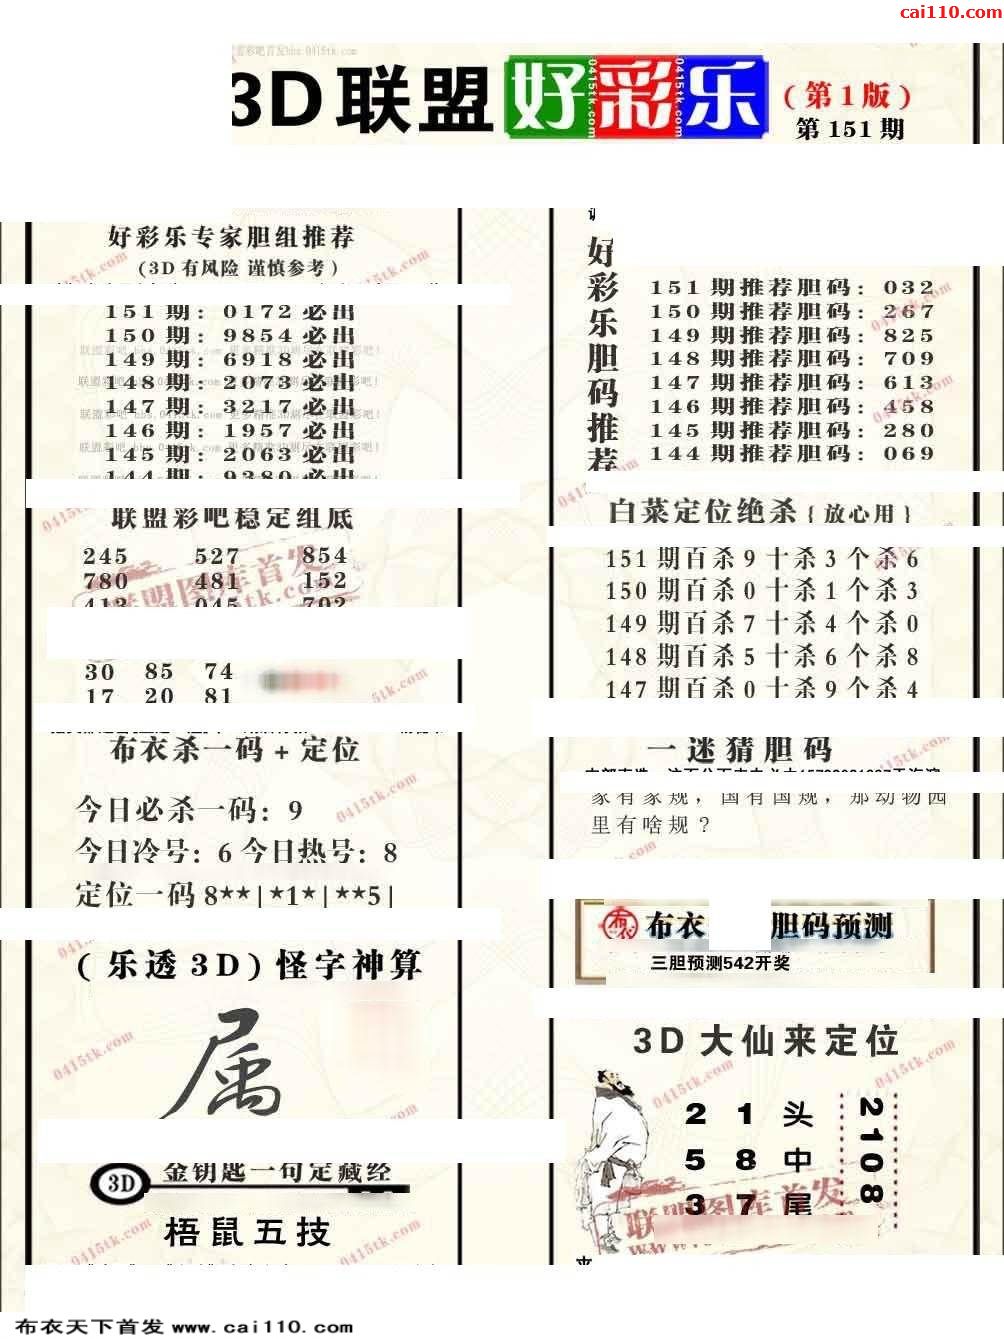 cai110.com
3D联盟 好彩乐 (第1版)
第151期
好彩乐专家胆组推荐
(3D有风险 谨慎参考)
151期: 0172必出
150期: 9854必出
149期: 6918必出
148期: 2073必出
147期: 3217必出
146期: 1957必出
145期: 2063必出
144期: 9380必出
联盟彩吧稳定组底
245 527 854
780 481 152
413 045 702
30 85 74
17 20 81
布衣杀一码+定位
今日必杀一码: 9
今日冷号: 6 今日热号: 8
定位一码8**|*1*|**5|
(乐透3D)怪字神算
属
3D 金钥匙一句定藏经
梧鼠五技
好彩乐胆码推荐
151期推荐胆码: 032
150期推荐胆码: 267
149期推荐胆码: 825
148期推荐胆码: 709
147期推荐胆码: 613
146期推荐胆码: 458
145期推荐胆码: 280
144期推荐胆码: 069
白菜定位绝杀{放心用}
151期百杀9十杀3个杀6
150期百杀0十杀1个杀3
149期百杀7十杀4个杀0
148期百杀5十杀6个杀8
147期百杀0十杀9个杀4
一迷猜胆码
家有家规，国有国规，那动物园
里有啥规？
布衣 胆码预测
三胆预测542开奖
3D大仙来定位
2 1头
5 8中
3 7尾
2108
联盟图库首发
0415tk.com
布衣天下首发 www.cai110.com